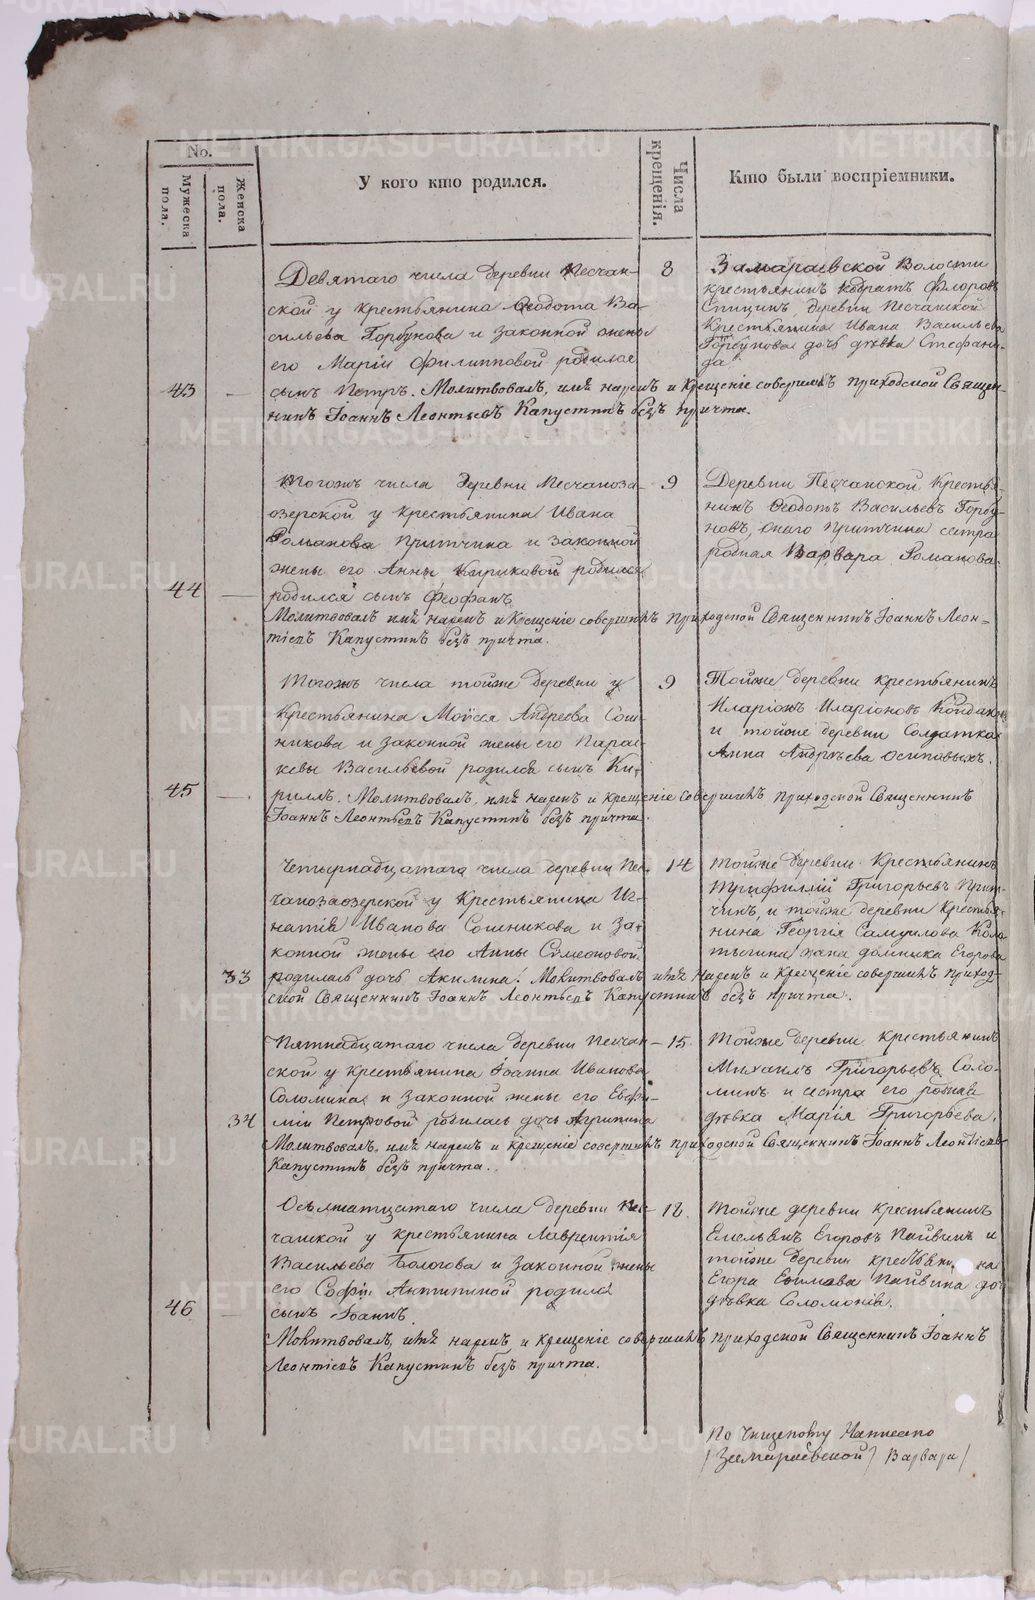 No.
Мужеска пола.
Женска пола.
У кого кто родился.
Числа крещенія.
Кто были воспріемники.
Девятаго числа деревни Песчан-
ской у крестьянина Ѳеодота Ва-
сильева Горбунова и законной жены
его Маріи Филипповой родился
43 — сынъ Петръ. Молитвовалъ, имѧ нарекъ и крещеніе совершилъ приходской Священ-
никъ Іоаннъ Леонтьевъ Капустинъ безъ причта.
8
Замараевской Волости
крестьянинъ Флоровъ
Спицинъ, деревни Песчанской
Крестьянина Ивана Васильева
Горбунова дочь дѣвка Стефани-
да
Тогожъ числа деревни Песчаноза-
озерской у крестьянина Ивана
Романова Притчина и законной
жены его Анны Кириковой родился
44 — родился сынъ Феофанъ.
Молитвовалъ имѧ нарекъ и крещеніе совершилъ приходской Священникъ Іоаннъ Леон=
тіевъ Капустинъ безъ причта.
9
Деревни Песчанской Крестья-
нинъ Ѳеодотъ Васильевъ Горбу-
новъ, онаго Притчина сестра
родная Варвара Романова.
Тогожъ числа тойже деревни у
Крестьянина Моѵсея Андреева Сош-
никова и законной жены его Парас-
кевы Васильевой родился сынъ Ки-
45 — риллъ. Молитвовалъ, имѧ нарекъ и крещеніе совершилъ приходской Священникъ
Іоаннъ Леонтьевъ Капустинъ безъ причта.
9
Тойже деревни крестьянинъ
Иларіонъ Иларіоновъ
и тойже деревни Солдатка
Анна Андрѣева Осиповыхъ.
Четырнадцатаго числа деревни Пес-
чанозаозерской у Крестьянина Иг-
натія Иванова Сошникова и за-
конной жены его Анны Симеоновой
33 родилась дочь Акилина. Молитвовалъ имѧ нарекъ и крещеніе совершилъ приход-
ской Священникъ Іоаннъ Леонтьевъ Капустинъ безъ причта.
14
Тойже деревни Крестьянинъ
Трифиллій Григорьевъ Прит-
чинъ, и тойже деревни Крестья-
нина Георгія Самуилова Кола-
тыгина жена домника Егорова
Пятнадцатаго числа деревни Песчан-
ской у крестьянина Іоанна Иванова
Соломина и законной жены его Евфи-
34 міи Петровой родилась дочь Агрипина
Молитвовалъ, имѧ нарекъ и крещеніе совершилъ приходской Священникъ Іоаннъ Леонтіевъ
Капустинъ безъ причта.
15.
Тойже деревни крестьянинъ
Михаилъ Григорьевъ Соло-
минъ и сестра его родная
дѣвка Марія Григорьева.
Осьмнатцатаго числа деревни Пес-
чанской у крестьянина Лаврентія
Васильева Бологова и законной жены
его Софіи Антипиной родился
46 — сынъ Іоаннъ.
Молитвовалъ, имѧ нарекъ, и крещеніе совершилъ приходской Священникъ Іоаннъ
Леонтіевъ Капустинъ безъ причта.
18.
Тойже деревни крестьянинъ
Емельянъ Егоровъ Пайвинъ и
тойже деревни
Егора Ефимова Пайвина до
дѣвка Соломонія.
По чищеному Написано
/Замараевской/ Варвара/
METRIKI.GASO-URAL.RU